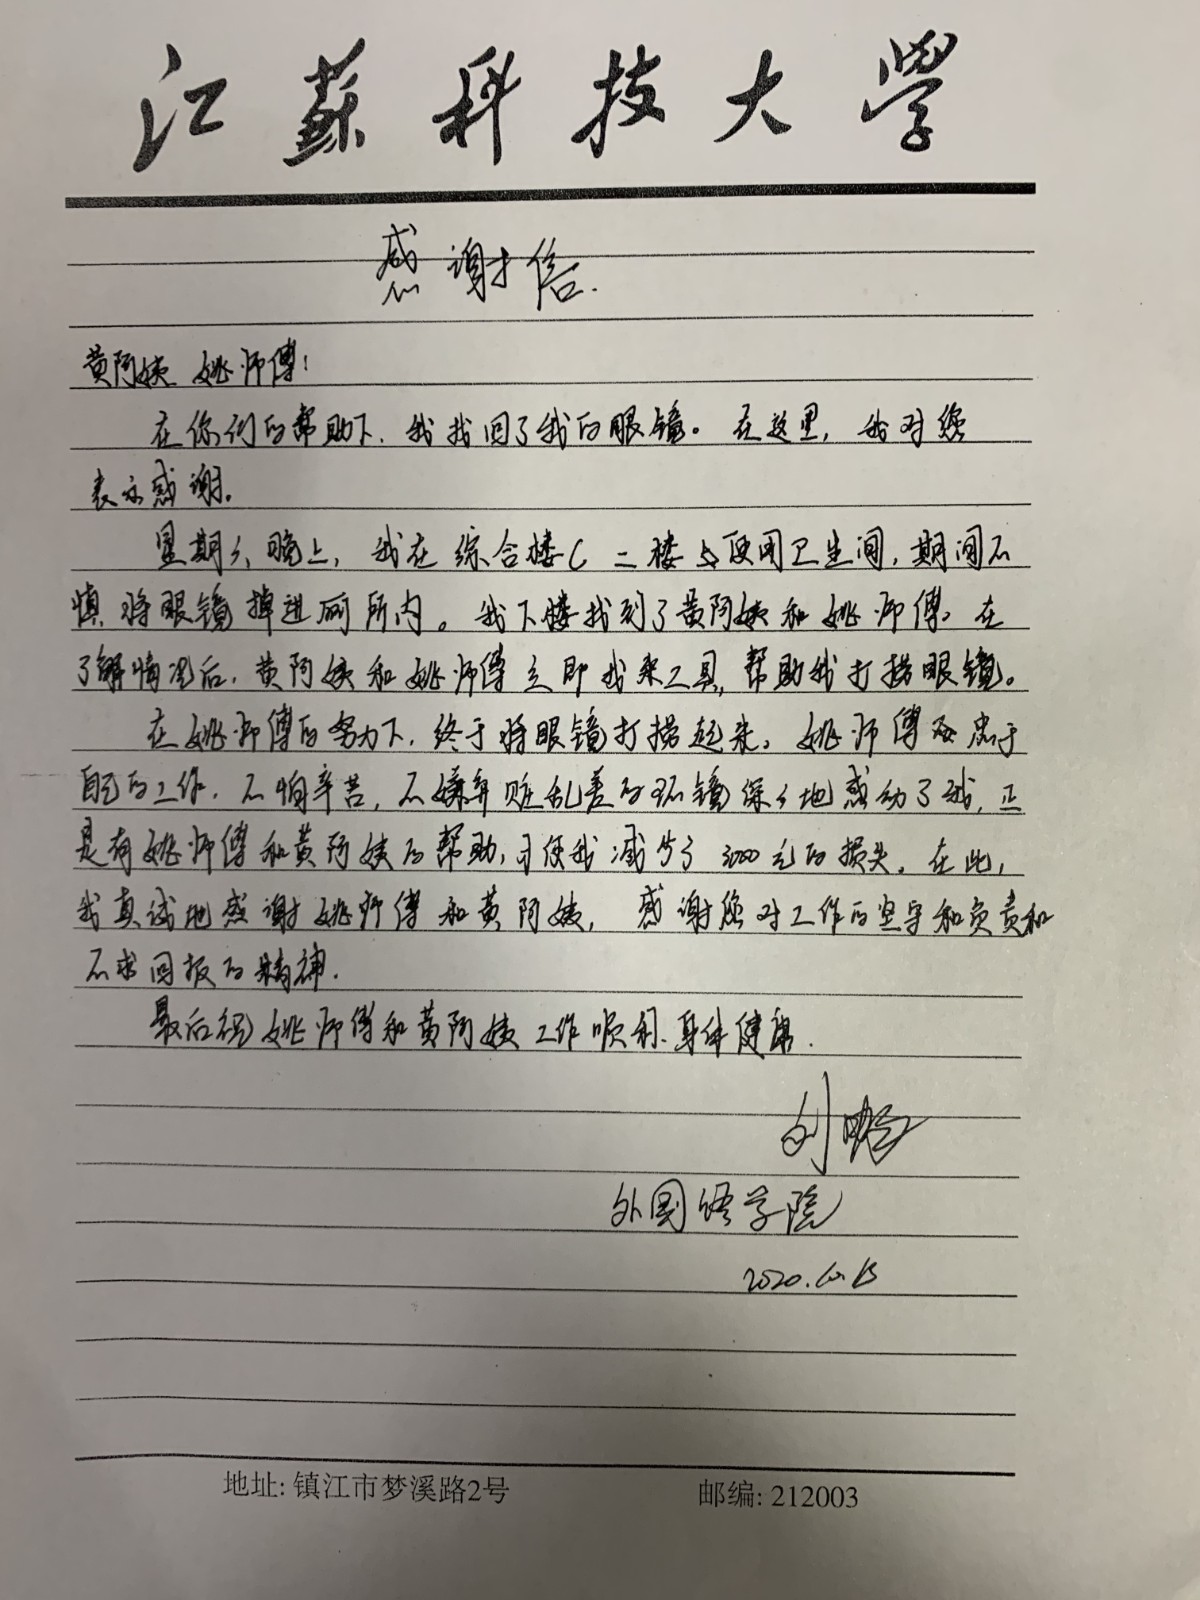 江蘇科技大學
感谢信.
黄阿姨 姚师傅:
在你们的帮助下,我找回了我的眼镜。在这里,我对您
表示感谢。
星期 晚上,我在综合楼C二楼 使用卫生间,期间不
慎将眼镜掉进厕所内。我下楼找到了黄阿姨和姚师傅。在
了解情况后,黄阿姨和姚师傅立即找来工具,帮助我打捞眼镜。
在姚师傅的努力下,终于将眼镜打捞起来。姚师傅 忠于
自己的工作,不怕辛苦,不嫌弃脏乱差的环镜深深地感动了我,正
是有姚师傅和黄阿姨的帮助,才使我减少了3000元的损失。在此,
我真诚地感谢姚师傅和黄阿姨,感谢您对工作的坚守和负责和
不求回报的精神.
最后祝姚师傅和黄阿姨工作顺利、身体健康.
刘畅
外国语学院
2020.10.15
地址: 镇江市梦溪路2号 邮编: 212003